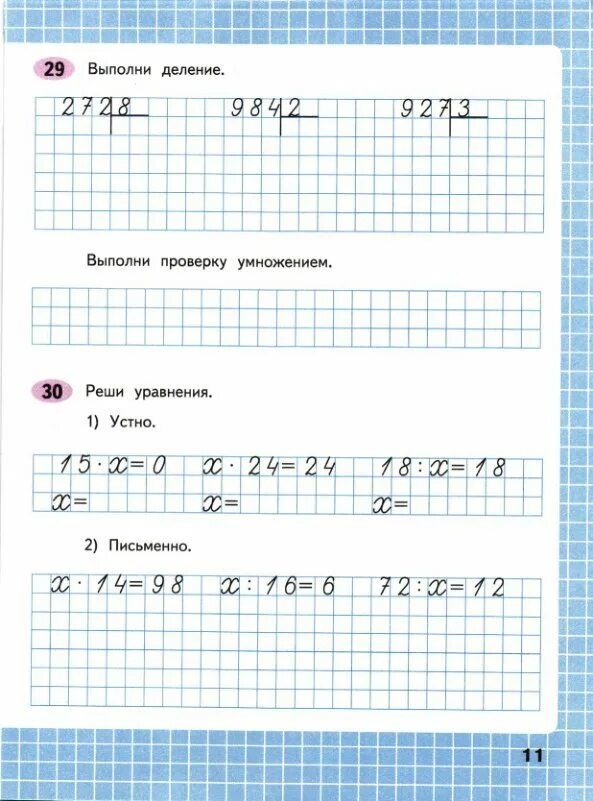 29 Выполни деление.
272 8 984 2 927 3
Выполни проверку умножением.
30 Реши уравнения.
1) Устно.
15 · x = 0 x · 24 = 24 18 : x = 18
x = x = x =
2) Письменно.
x · 14 = 98 x : 16 = 6 72 : x = 12
11